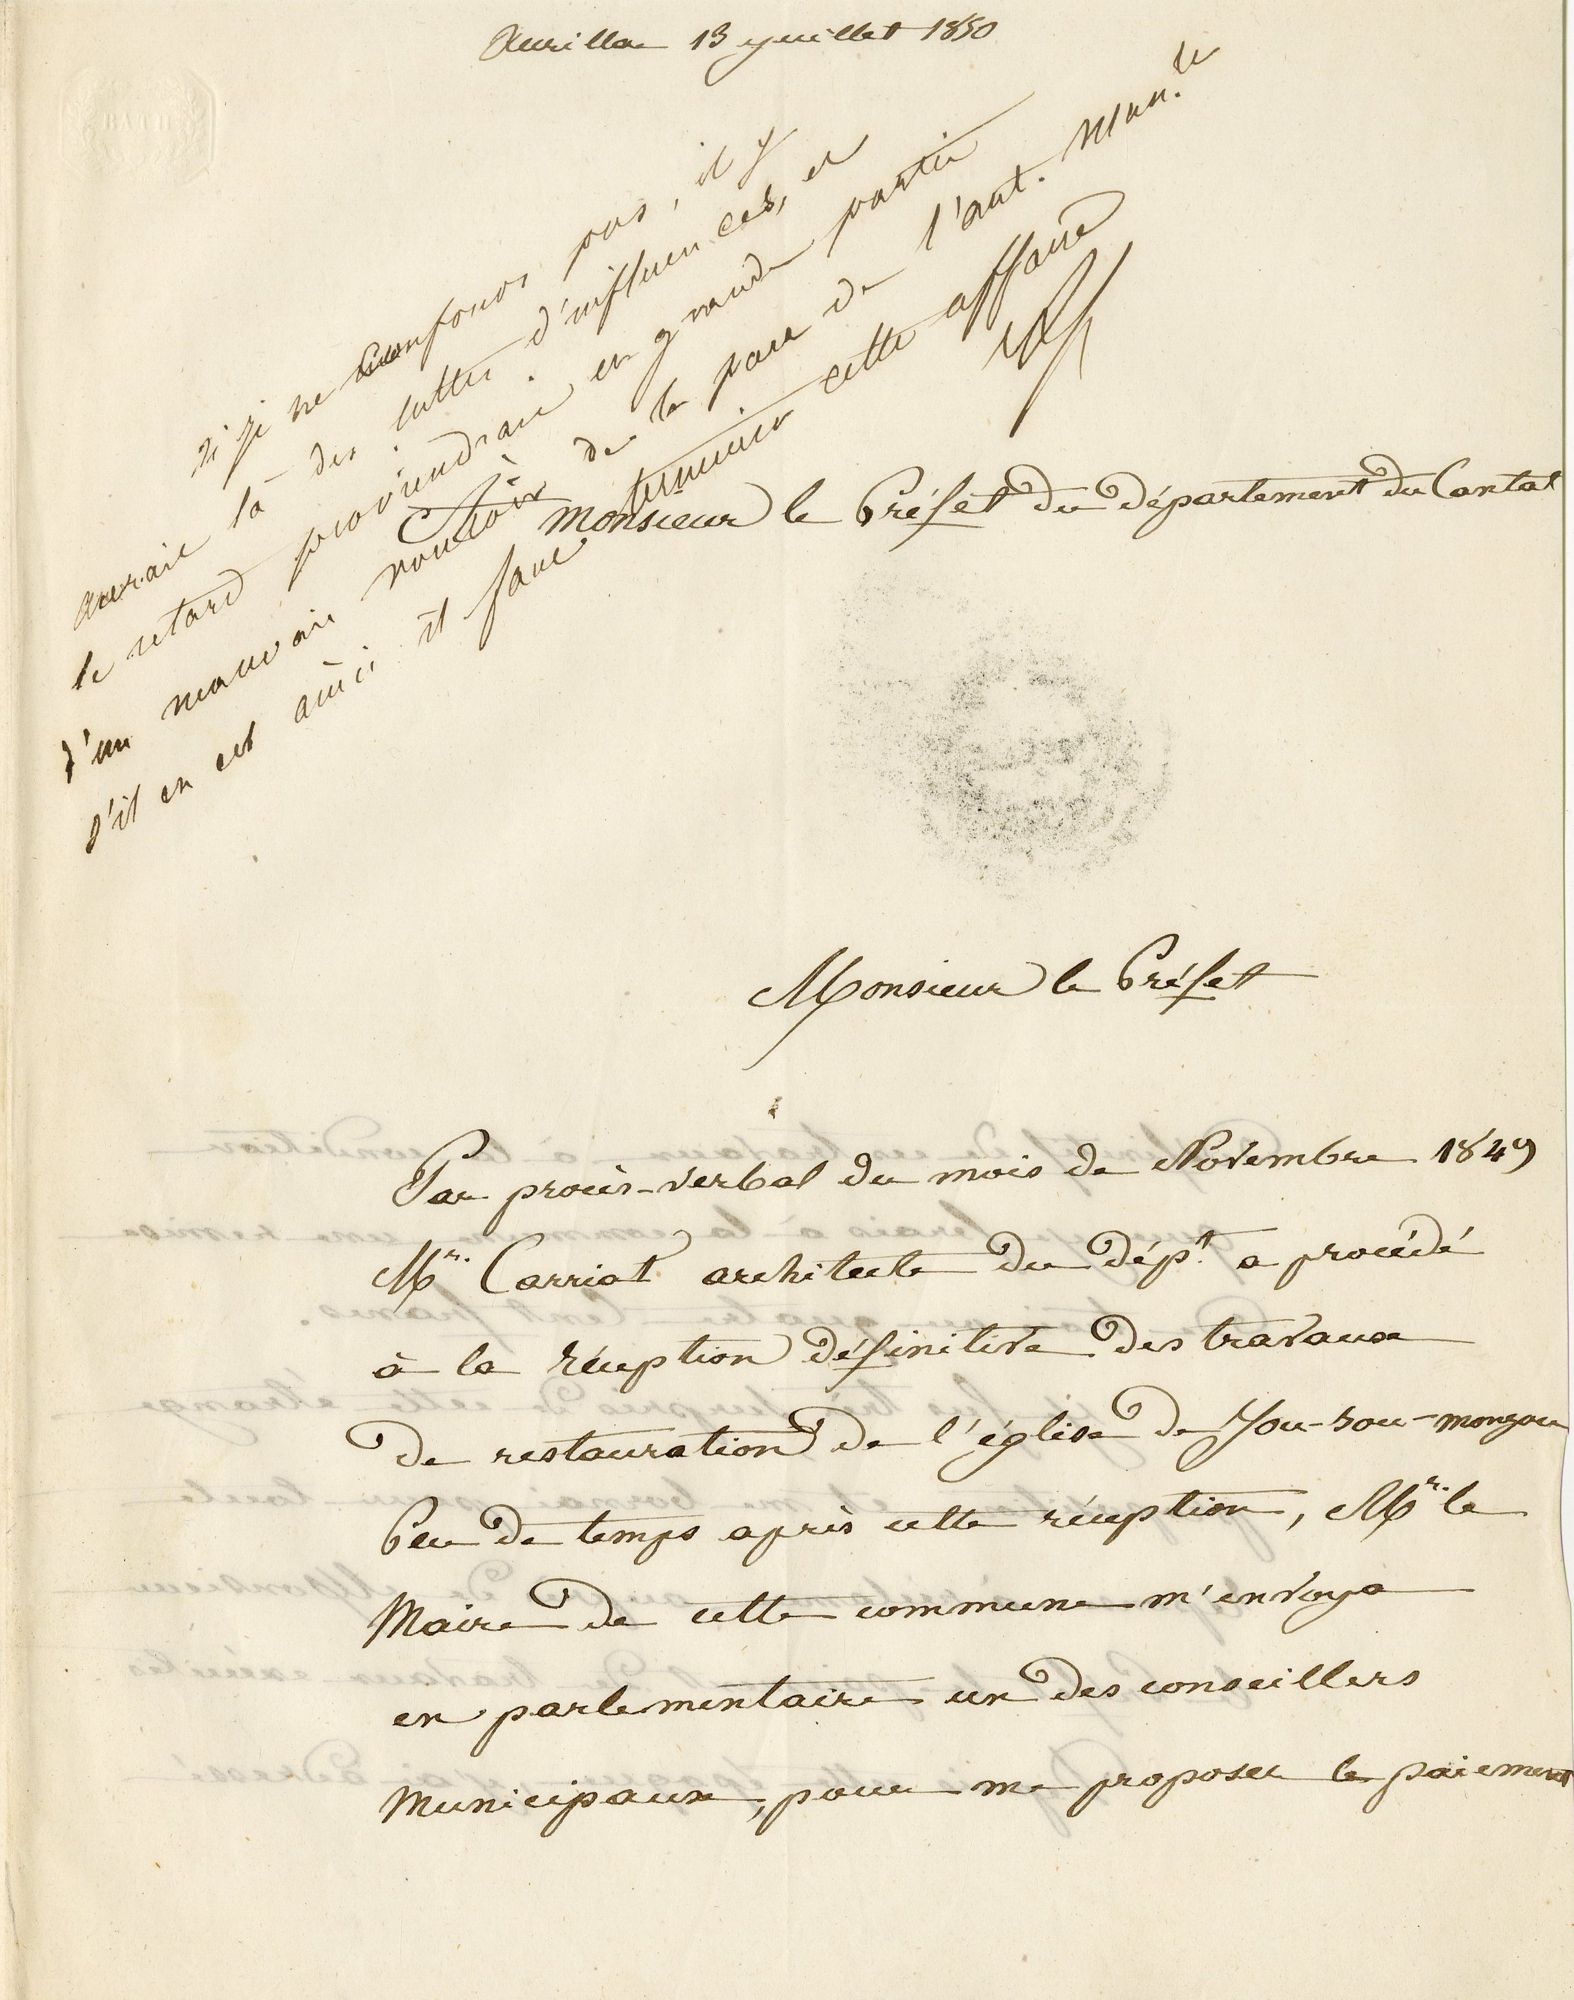 Aurillac 13 juillet 1850
BATH
si je ne confonds pas, il y
aurait là des luttes d'influences, et
le retard proviendrait en grande partie
d'un mauvais vouloir de la part de l'aut. Mun.le
s'il en est ainsi il faut terminer cette affaire
À Monsieur le Préfet du département du Cantal
Monsieur le Préfet
Par procès-verbal du mois de Novembre 1849
Mr. Carriat architecte du dépt. a procédé
à la réception définitive des travaux
de restauration de l'église de Jou-sou-monjou
Peu de temps après cette réception, Mr. le
Maire de cette commune m'envoya
en parlementaire un des conseillers
Municipaux, pour me proposer le paiement